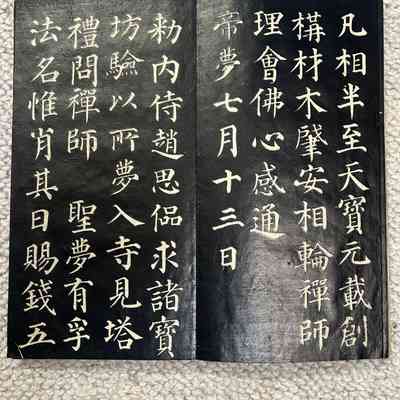 凡相半至天寶元載創
構材木肇安相輪禪師
理會佛心感通
帝夢七月十三日
勑內侍趙思侃求諸寶
坊驗以所夢入寺見塔
禮問禪師 聖夢有孚
法名惟肖其日賜錢五